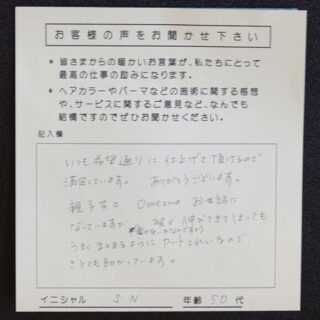 お客様の声をお聞かせ下さい
* 皆さまからの暖かいお言葉が、私たちにとって
最高の仕事の励みになります。
* ヘアカラーやパーマなどの施術に関する感想
や、サービスに関するご意見など、なんでも
結構ですのでぜひお聞かせください。
記入欄
いつも希望通りに仕上げて頂けるので
満足しています。 ありがとうございます。
親子共々、 Owenの お世話に
なっていますが
うまくまとまるように カットされているので、
とても助かっています。
イニシャル S N 年齢 50 代